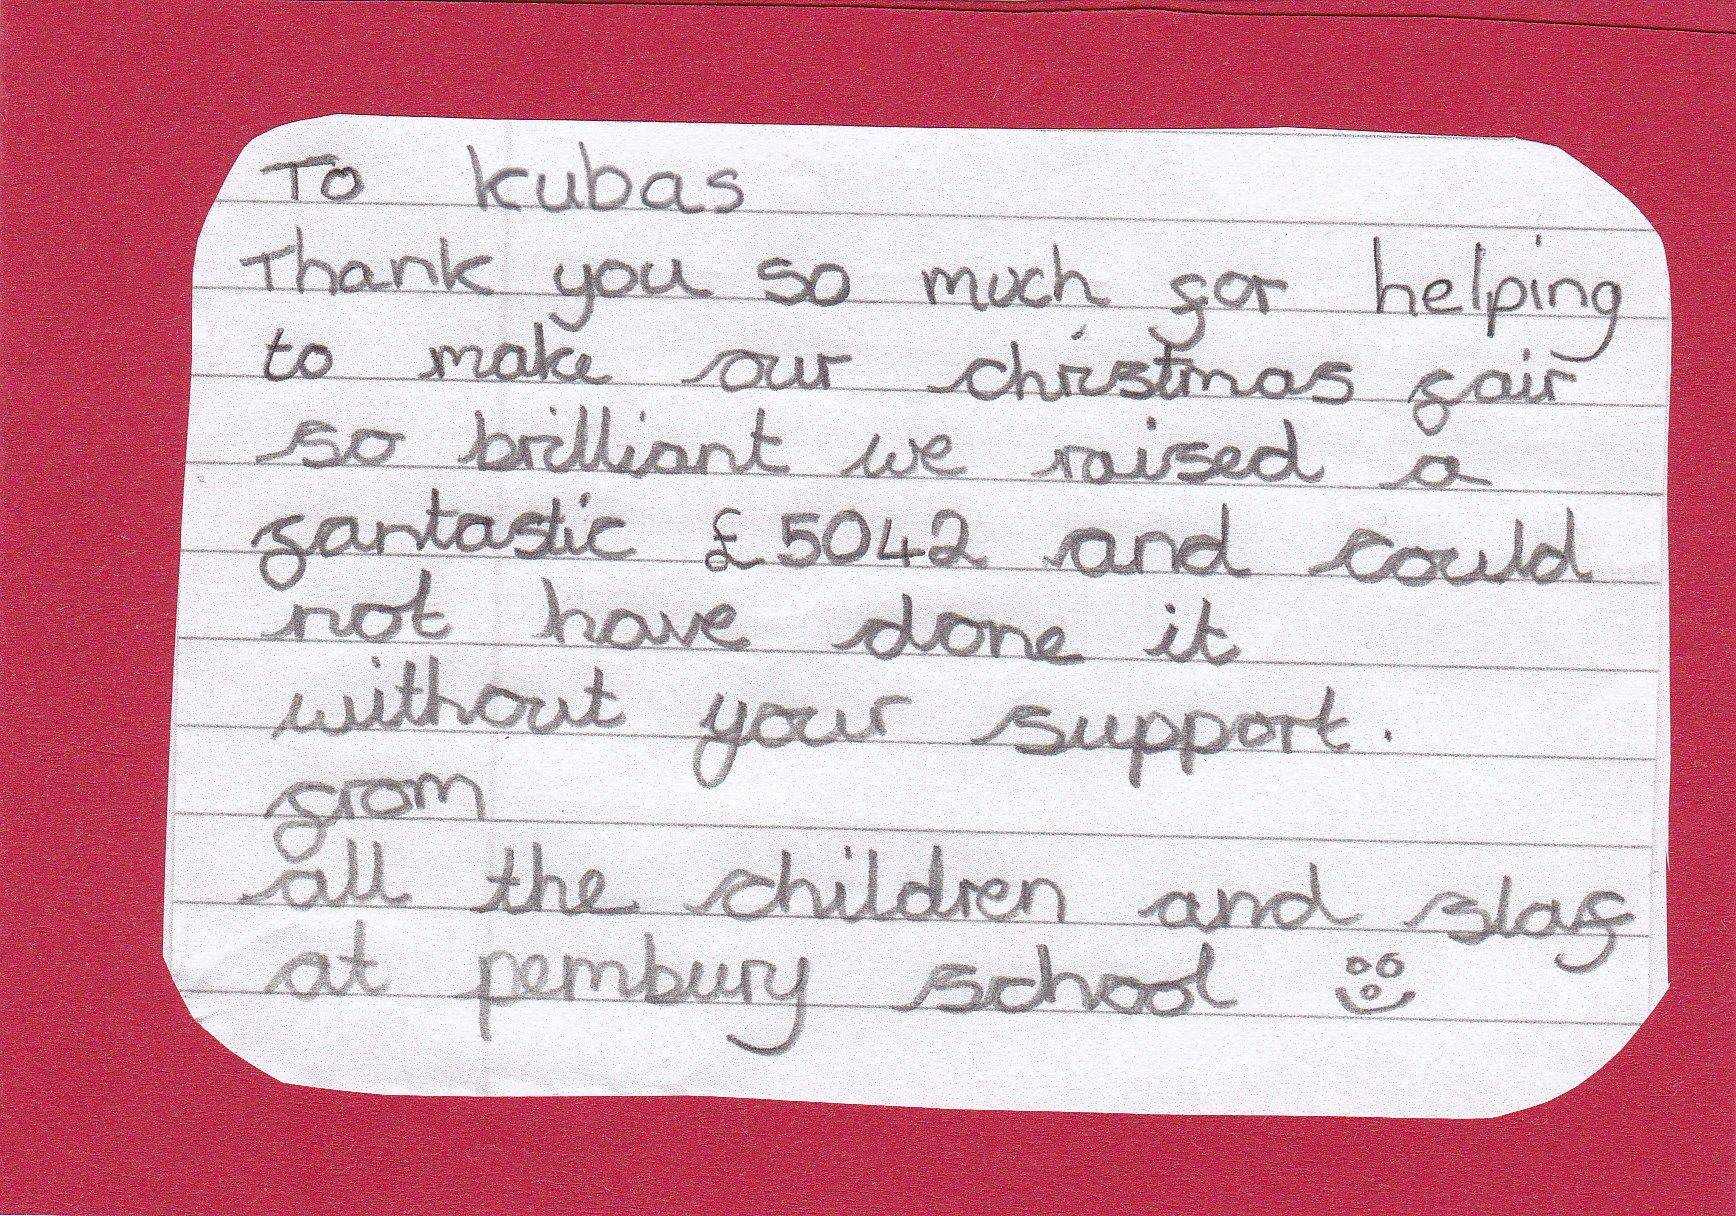 To kubas
Thank you so much for helping
to make our christmas fair
so brilliant we raised a
fantastic £5042 and could
not have done it
without your support.
from
all the children and slaf
at pembury school